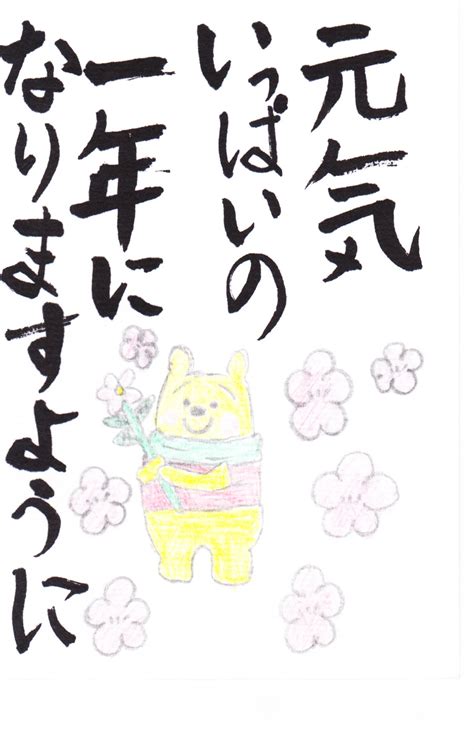 元気
いっぱいの
一年に
なりますように